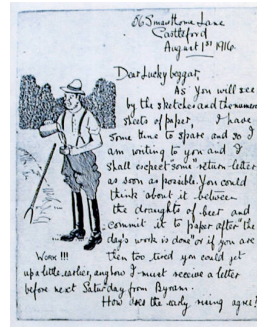 Smawthorne Lane
Castleford
August 1st 1916.
Dear Lucky beggar,
As you will see
by the sketches and the
sheets of paper, I have
some time to spare and so I
am writing to you and I
shall expect some "return-letter
as soon as possible. You could
think about it between
the draughts of beer and
commit it to paper after "the
day's work is done" or if you are
then too tired you could get
up a little earlier, anyhow I must receive a letter
before next Saturday from Byram.
How does the early rising agree?
WORK !!!